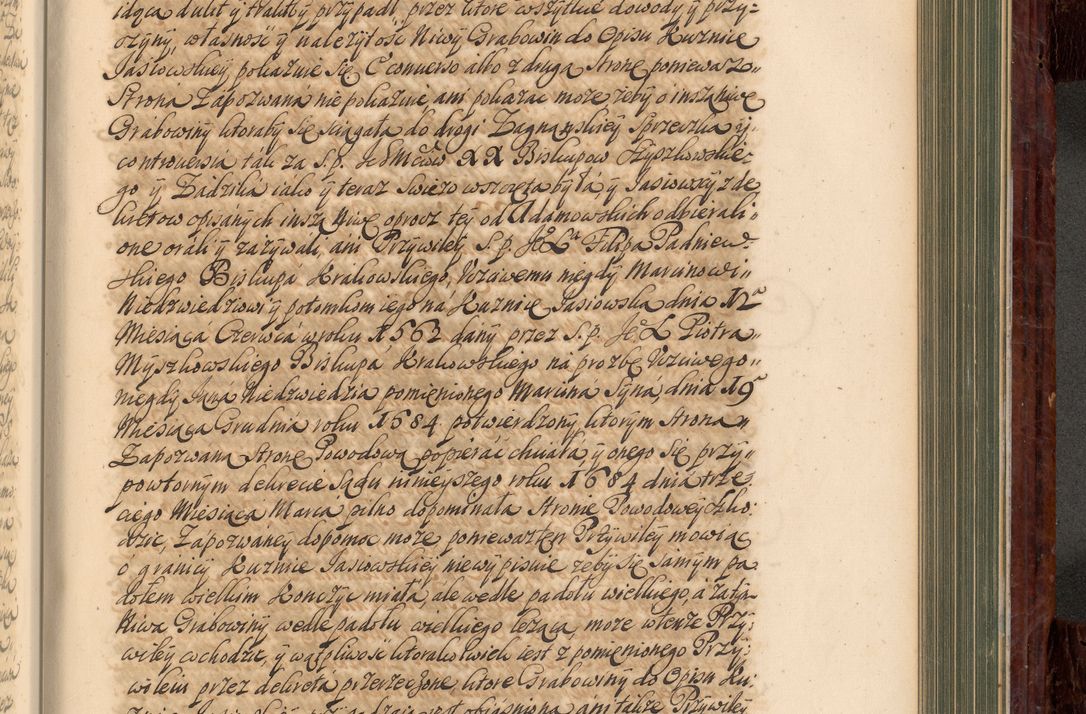 idąca dukt y trakt by przypadł przez ktore wszytkie dowody y przy„
czyny, własność y należytość Niwy Grabowin do Opisu Kuznice
Jasiowskiey pokazuie się E converso albo z drugą stronę ponieważ„
Strona Zapozwana nie pokazuie, ani pokazać może żeby o inszą niwę
Grabowiny ktoraby się sciągała do drogi Zagnanskiey Sprzeczka y„
controversia tak za S.p. Je SMćiow XX Biskupow Szyszkowskie„
go y Zadzika iako y teraz świeżo wszczęta była, y Jasiowscy z de
kretow opisanych inszą Niwę oprocz tey od Adamowskich odbierali„
one orali y zazywali, ani Przywiley S.p. Je° Lti Filipa Padniew„
skiego Biskupa Krakowskiego, Vczciwemu niegdy Marcinowi„
Niedzwiedziowi y potomkom iego na Kuznicę Jasiowską dnia 12a
Miesiąca Czerwca w roku 1563 dany przez S.p. Je° L Piotra
Myszkowskiego Biskupa Krakowskiego na prozbę Vczciwego„
niegdy Jana Niedzwiedzia pomienionego Marcina Syna dnia 19a
Miesiąca Grudnia roku 1684 potwierdzony, ktorym Strona„
Zapozwana Stronę Powodową popierać chciała y onego się przy„
powtornym dekrecie Sądu ninieyszego roku 1684 dnia trze„
ciego Miesiąca Marca pilno dopominała Stronie Powodowey szko„
dzić, Zapozwaney dopomoc może ponieważ ten Przywiley mowiąc
o granicy Kuznice Jasiowskiey niewypisuie żeby się samym pa
dołem wielkim Konczyć miała, ale wedle padołu wielkiego, a zatym
Niwa Grabowiny wedle padołu wielkiego leżąca, może w tenże Przy„
wiley wchodzić, y wątpliwość ktorakolwiek iest z pomienionego Przy„
wileiu przez dekreta przerzeczone, ktore Grabowiny do Opisu Ku„
obiasniona, ani także Przywiley